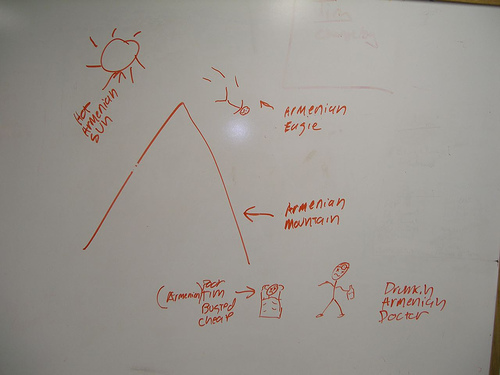 Hot
Armenian
Sun
Armenian
Eagle
Armenian
Mountain
(Armenian) Poor
Tim
Busted
Cheap
Drunkin
Armenian
Doctor